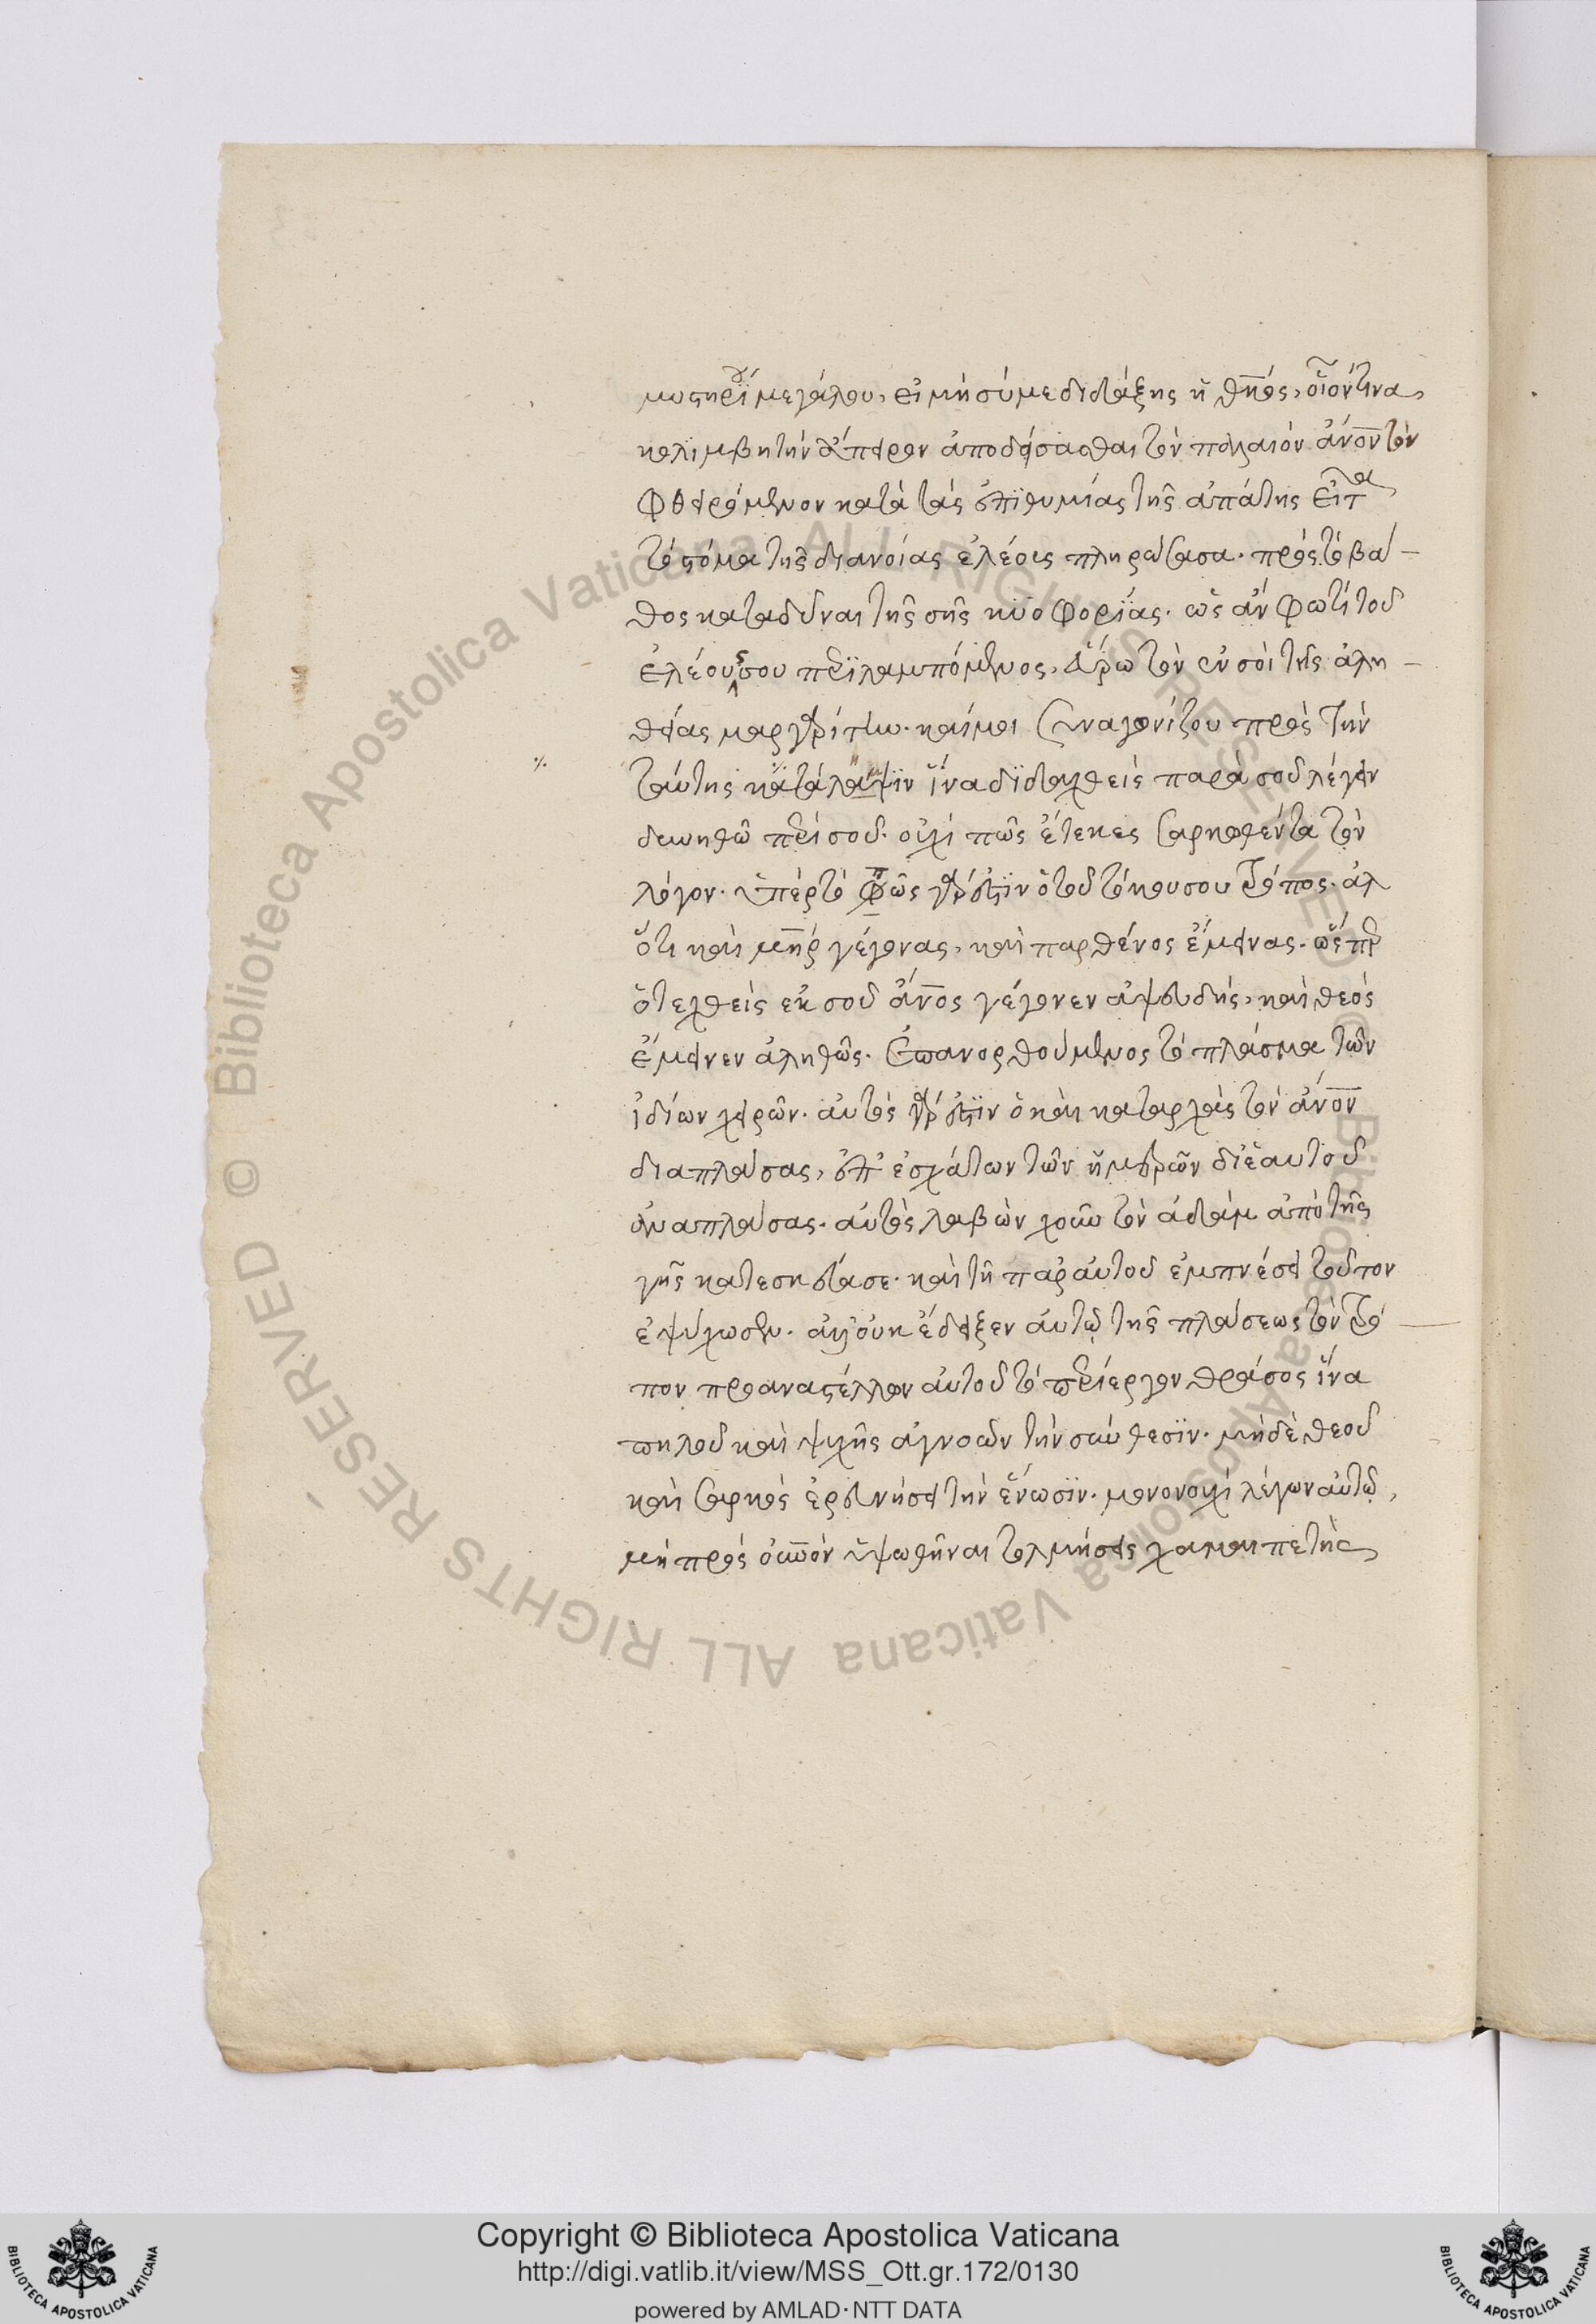 μυστηρίου μεγάλου, εἰ μὴ σύ με διδάξης ἡ θ̅κ̅ο̅ς, οἷόν τινα
κολιμβητὴν ἄπειρον ἀποδύσασθαι τὸν παλαιὸν ἄνο̅ν̅ τὸν
φθειρόμενον κατὰ τὰς ἐπιθυμίας τῆς ἀπάτης εἶτα
τὸ στόμα τῆς διανοίας ἐλέους πληρώσασα· πρὸς τὸ βά-
θος καταδῦναι τῆς σῆς κυοφορίας· ὡς ἂν φωτὶ τοῦ
ἐλέους σου περιλαμπόμενος, εὕρω τὸν ἐν σοὶ τῆς ἀλη-
θείας μαργαρίτην· καί μοι συναγωνίζου πρὸς τὴν
ταύτης κατάληψιν ἵνα διδαχθεὶς παρὰ σοῦ λέγειν
δυνηθῶ περί σοῦ· οὐχὶ πῶς ἔτεκες σαρκωθέντα τὸν
λόγον· ὑπὲρ τὸ πῶς γάρ ἐστιν ὁ τοῦ τόκου σου τρόπος· ἀλ
ὅτι καὶ μ̅η̅ρ γέγονας, καὶ παρθένος ἔμεινας· ὥσπερ
ὁ τεχθεὶς ἐκ σοῦ ἄν̅ο̅ς γέγονεν ἀψευδής, καὶ θεὸς
ἔμεινεν ἀληθῶς· ἐπανορθούμενος τὸ πλάσμα τῶν
ἰδίων χειρῶν· αὐτὸς γάρ ἐστιν ὁ καὶ καταρχὰς τὸν ἄνο̅ν̅
διαπλάσας, ἐπ' ἐσχάτων τῶν ἡμερῶν δι' ἑαυτοῦ
ἀναπλάσας· αὐτὸς λαβὼν χοῦν τὸν ἀδὰμ ἀπὸ τῆς
γῆς κατεσκεύασε· καὶ τῆ παρ' αὐτοῦ ἐμπνεύσει τοῦτον
ἐψύχωσεν· ἀλλ' οὐκ ἔδειξεν αὐτῷ τῆς πλάσεως τὸν τρό
πον προαναστέλλων αὐτοῦ τὸ περίεργον θράσος ἵνα
πηλοῦ καὶ ψυχῆς ἀγνοῶν τὴν σύνθεσιν· μὴ δὲ θεοῦ
καὶ σαρκὸς ἐρευνήσει τὴν ἕνωσιν· μονονουχὶ λέγων αὐτῷ,
μὴ πρὸς οὐ̅ν̅ο̅ν ὑψωθῆναι τολμήσεις χαμαιπετὴς
Copyright © Biblioteca Apostolica Vaticana
http://digi.vatlib.it/view/MSS_Ott.gr.172/0130
powered by AMLAD·NTT DATA